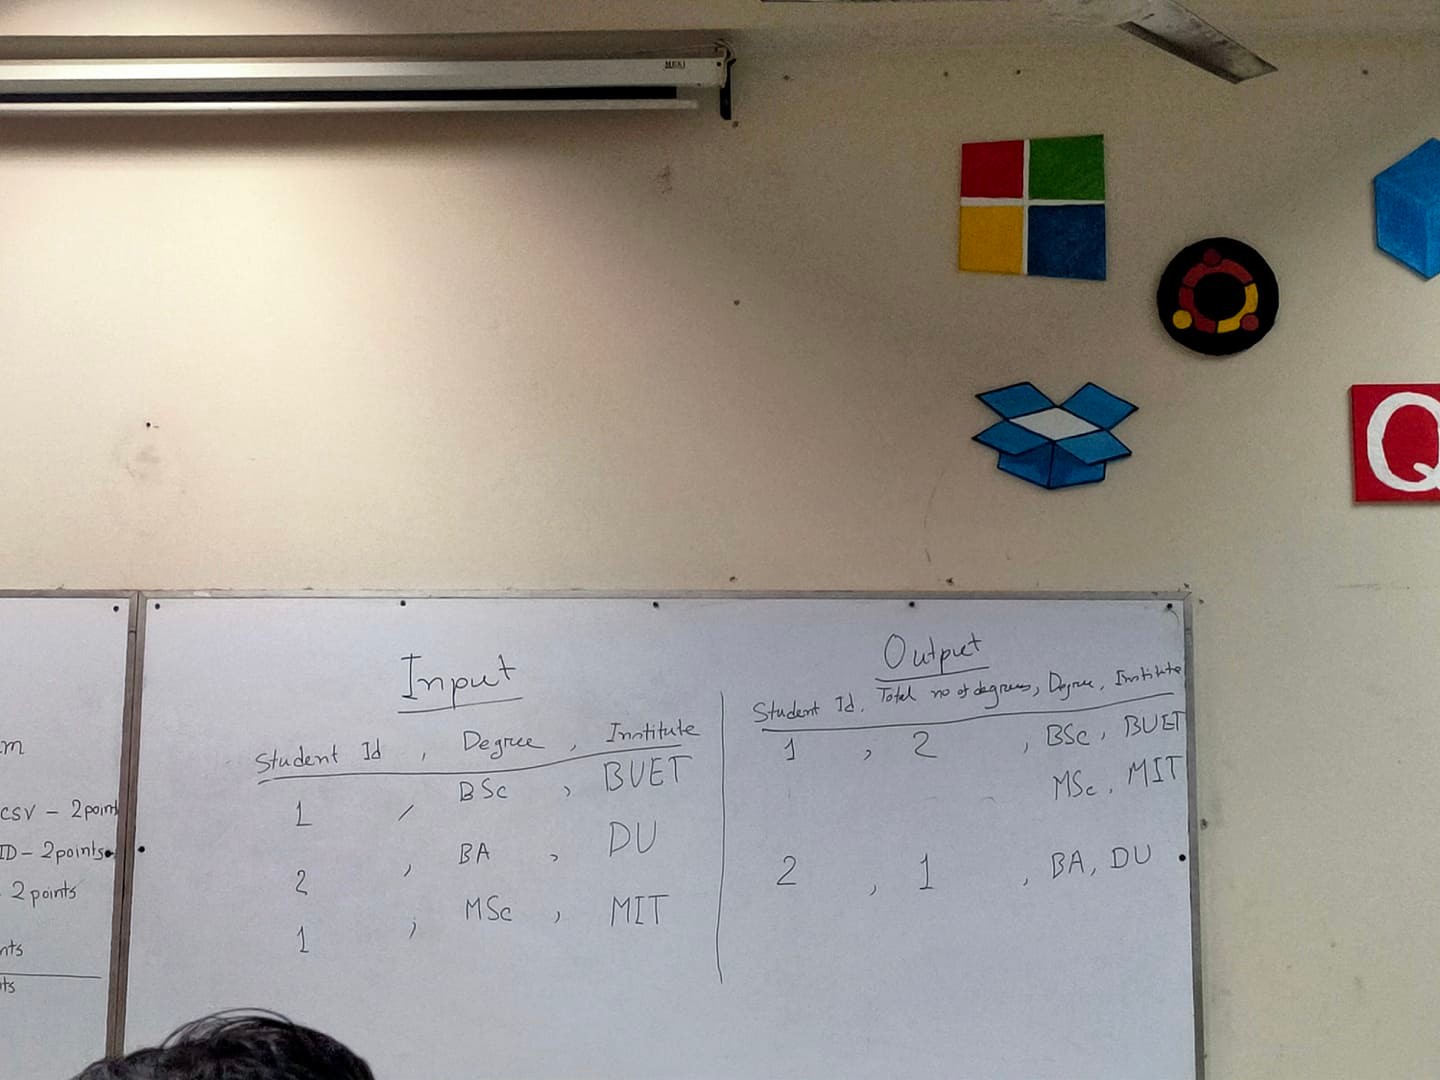 m
CSV – 2 points
ID – 2 points
2 points
nts
ts
Input
Student Id , Degree , Institute
1 , BSc , BUET
2 , BA , DU
1 , MSc , MIT
Output
Student Id, Total no of degrees, Degree, Institute
1 , 2 , BSc, BUET
MSc, MIT
2 , 1 , BA, DU
Q